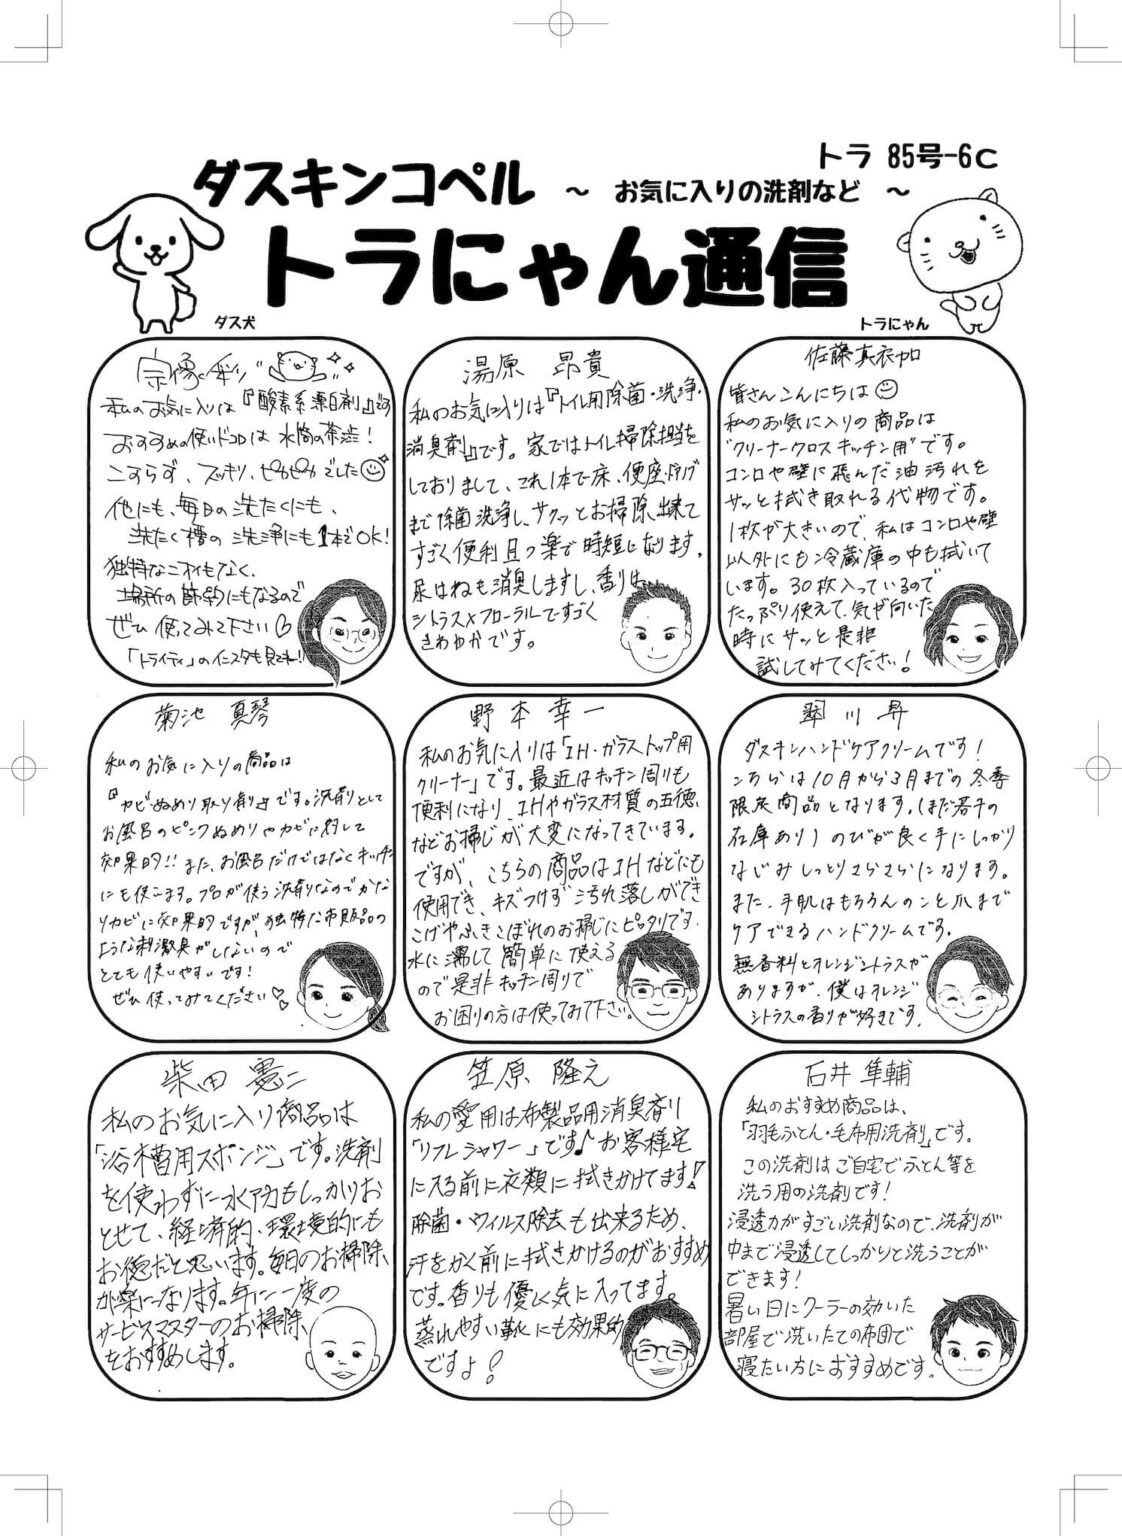 トラ 85号-6C
ダスキンコペル
～ お気に入りの洗剤など ～
トラにゃん通信
ダス犬
トラにゃん
宗像 彩
私のお気に入りは『酸素系漂白剤』です
おすすめの使いドコロは 水筒の茶渋!
こすらず、スッキリ、ピカピカでした
他にも、毎日の洗たくにも、
洗たく槽の洗浄にも1本でOK!
独特なニオイもなく、
場所の節約にもなるので
ぜひ 使ってみて下さい♡
「トライティ」のインスタも見てね!!
湯原 昂貴
私のお気に入りは『トイレ用除菌・洗浄・
消臭剤』です。家ではトイレ掃除担当を
しておりまして、これ1本で床、便座、
まで除菌洗浄し、サクッとお掃除出来て
すごく便利且つ楽で時短になります。
尿はねも消臭しますし、香りは
シトラス×フローラルですごく
さわやかです。
佐藤 真衣加
皆さんこんにちは☺
私のお気に入りの商品は
"クリーナークロスキッチン用"です。
コンロや壁に飛んだ油汚れを
サッと拭き取れる代物です。
1枚が大きいので、私はコンロや壁
以外にも冷蔵庫の中も拭いて
います。30枚入っているので
たっぷり使えて、気が向いた
時にサッと是非
試してみてください!
菊池 真琴
私のお気に入りの商品は
『カビ・ぬめり取り剤』です。洗剤として
お風呂のピンクぬめりやカビに対して
効果的!! また、お風呂だけではなくキッチン
にも使えます。プロが使う洗剤なのでかな
りカビに効果的ですが、独特な市販品の
ような刺激臭がしないので
とても使いやすいです!
ぜひ使ってみてください♡♡
野本 幸一
私のお気に入りは「IH・ガラストップ用
クリーナー」です。最近はキッチン周りも
便利になり、IHやガラス材質の五徳、
などお掃除が大変になってきています。
ですが、こちらの商品はIHなどにも
使用でき、キズつけず汚れ落しができ
こげやふきこぼれのお掃除にピッタリです。
水に濡して簡単に使える
ので是非キッチン周りで
お困りの方は使ってみて下さい。
翠川 昇
ダスキンハンドケアクリームです!
こちらは10月から3月までの冬季
限定商品となります。(まだ若干の
在庫あり) のびが良く手にしっかり
なじみしっとりさらさらになります。
また、手肌はもちろんのこと爪まで
ケアできるハンドクリームです。
無香料とオレンジシトラスが
ありますが、僕はオレンジ
シトラスの香りが好きです。
柴田 憲二
私のお気に入り商品は
「浴槽用スポンジ」です。洗剤
を使わずに水アカもしっかりお
とせて、経済的、環境的にも
お徳だと思います。毎日のお掃除
が楽になります。年に一度の
サービスマスターのお掃除
をおすすめします。
笠原 隆之
私の愛用は布製品用消臭香り
「リフレシャワー」です♪ お客様宅
に入る前に衣類に拭きかけてます!
除菌・ウィルス除去も出来るため、
汗をかく前に拭きかけるのがおすすめ
です。香りも優しく気に入ってます。
蒸れやすい靴にも効果的
ですよ!
石井 隼輔
私のおすすめ商品は、
「羽毛ふとん・毛布用洗剤」です。
この洗剤はご自宅でふとん等を
洗う用の洗剤です!
浸透力がすごい洗剤なので、洗剤が
中まで浸透してしっかりと洗うことが
できます!
暑い日にクーラーの効いた
部屋で洗いたての布団で
寝たい方におすすめです。